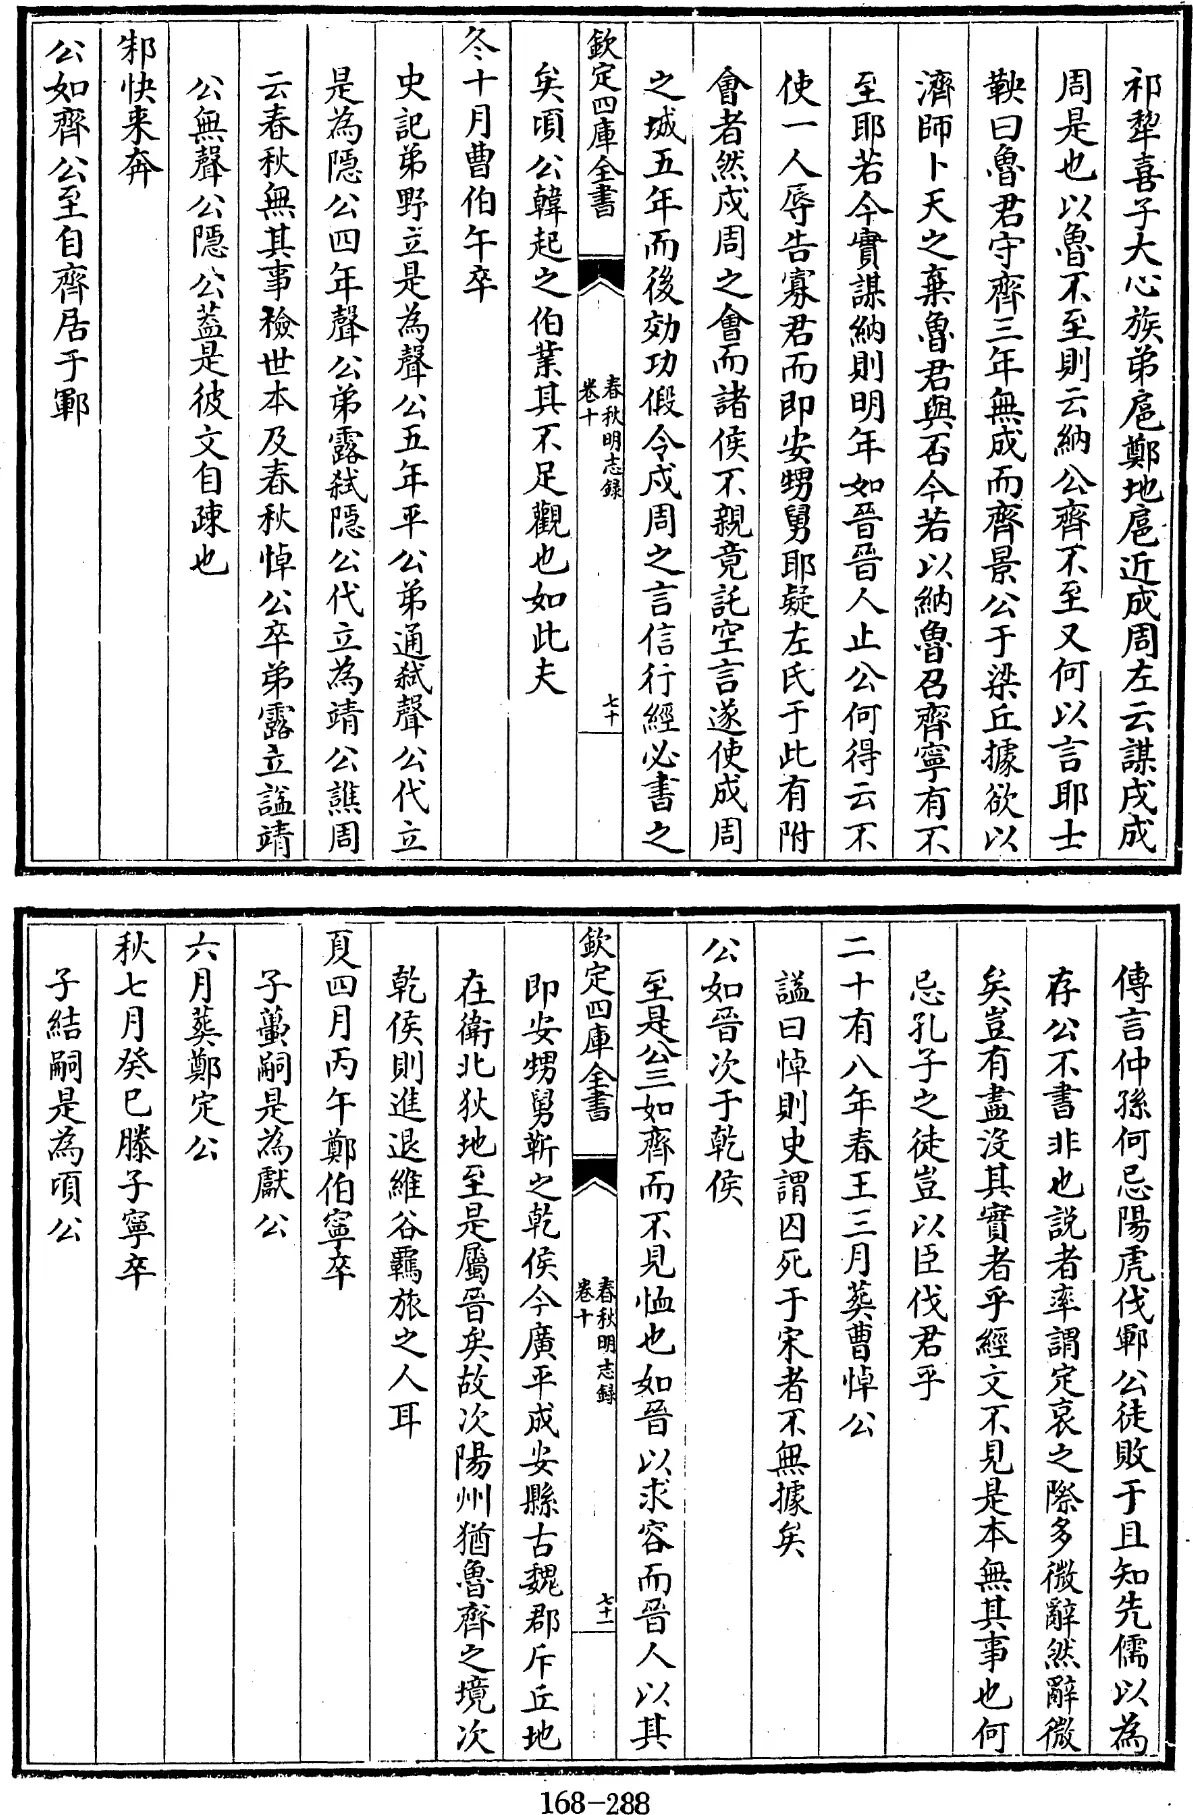 祁犂喜子大心族弟扈鄭地扈近成周左云謀戍成
周是也以魯不至則云納公齊不至又何以言耶士
鞅曰魯君守齊三年無成而齊景公于梁丘據欲以
濟師卜天之棄魯君與否今若以納魯召齊寧有不
至耶若今實謀納則明年如晉晉人止公何得云不
使一人辱告寡君而即安甥舅耶疑左氏于此有附
會者然戍周之會而諸侯不親竟託空言遂使成周
之城五年而後効功假令戍周之言信行經必書之
欽定四庫全書
春秋明志録
卷十
七十
矣頃公韓起之伯業其不足觀也如此夫
冬十月曹伯午卒
史記弟野立是為聲公五年平公弟通弑聲公代立
是為隠公四年聲公弟露弑隠公代立為靖公譙周
云春秋無其事檢世本及春秋悼公卒弟露立諡靖
公無聲公隠公葢是彼文自疎也
邾快来奔
公如齊公至自齊居于鄆
傳言仲孫何忌陽虎伐鄆公徒敗于且知先儒以為
存公不書非也説者率謂定哀之際多微辭然辭微
矣豈有盡没其實者乎經文不見是本無其事也何
忌孔子之徒豈以臣伐君乎
二十有八年春王三月葬曹悼公
諡曰悼則史謂囚死于宋者不無據矣
公如晉次于乾侯
至是公三如齊而不見恤也如晉以求容而晉人以其
欽定四庫全書
春秋明志録
卷十
七十一
即安甥舅靳之乾侯今廣平成安縣古魏郡斥丘地
在衛北狄地至是屬晉矣故次陽州猶魯齊之境次
乾侯則進退維谷羈旅之人耳
夏四月丙午鄭伯寧卒
子蠆嗣是為獻公
六月葬鄭定公
秋七月癸巳滕子寧卒
子結嗣是為頃公
168-288